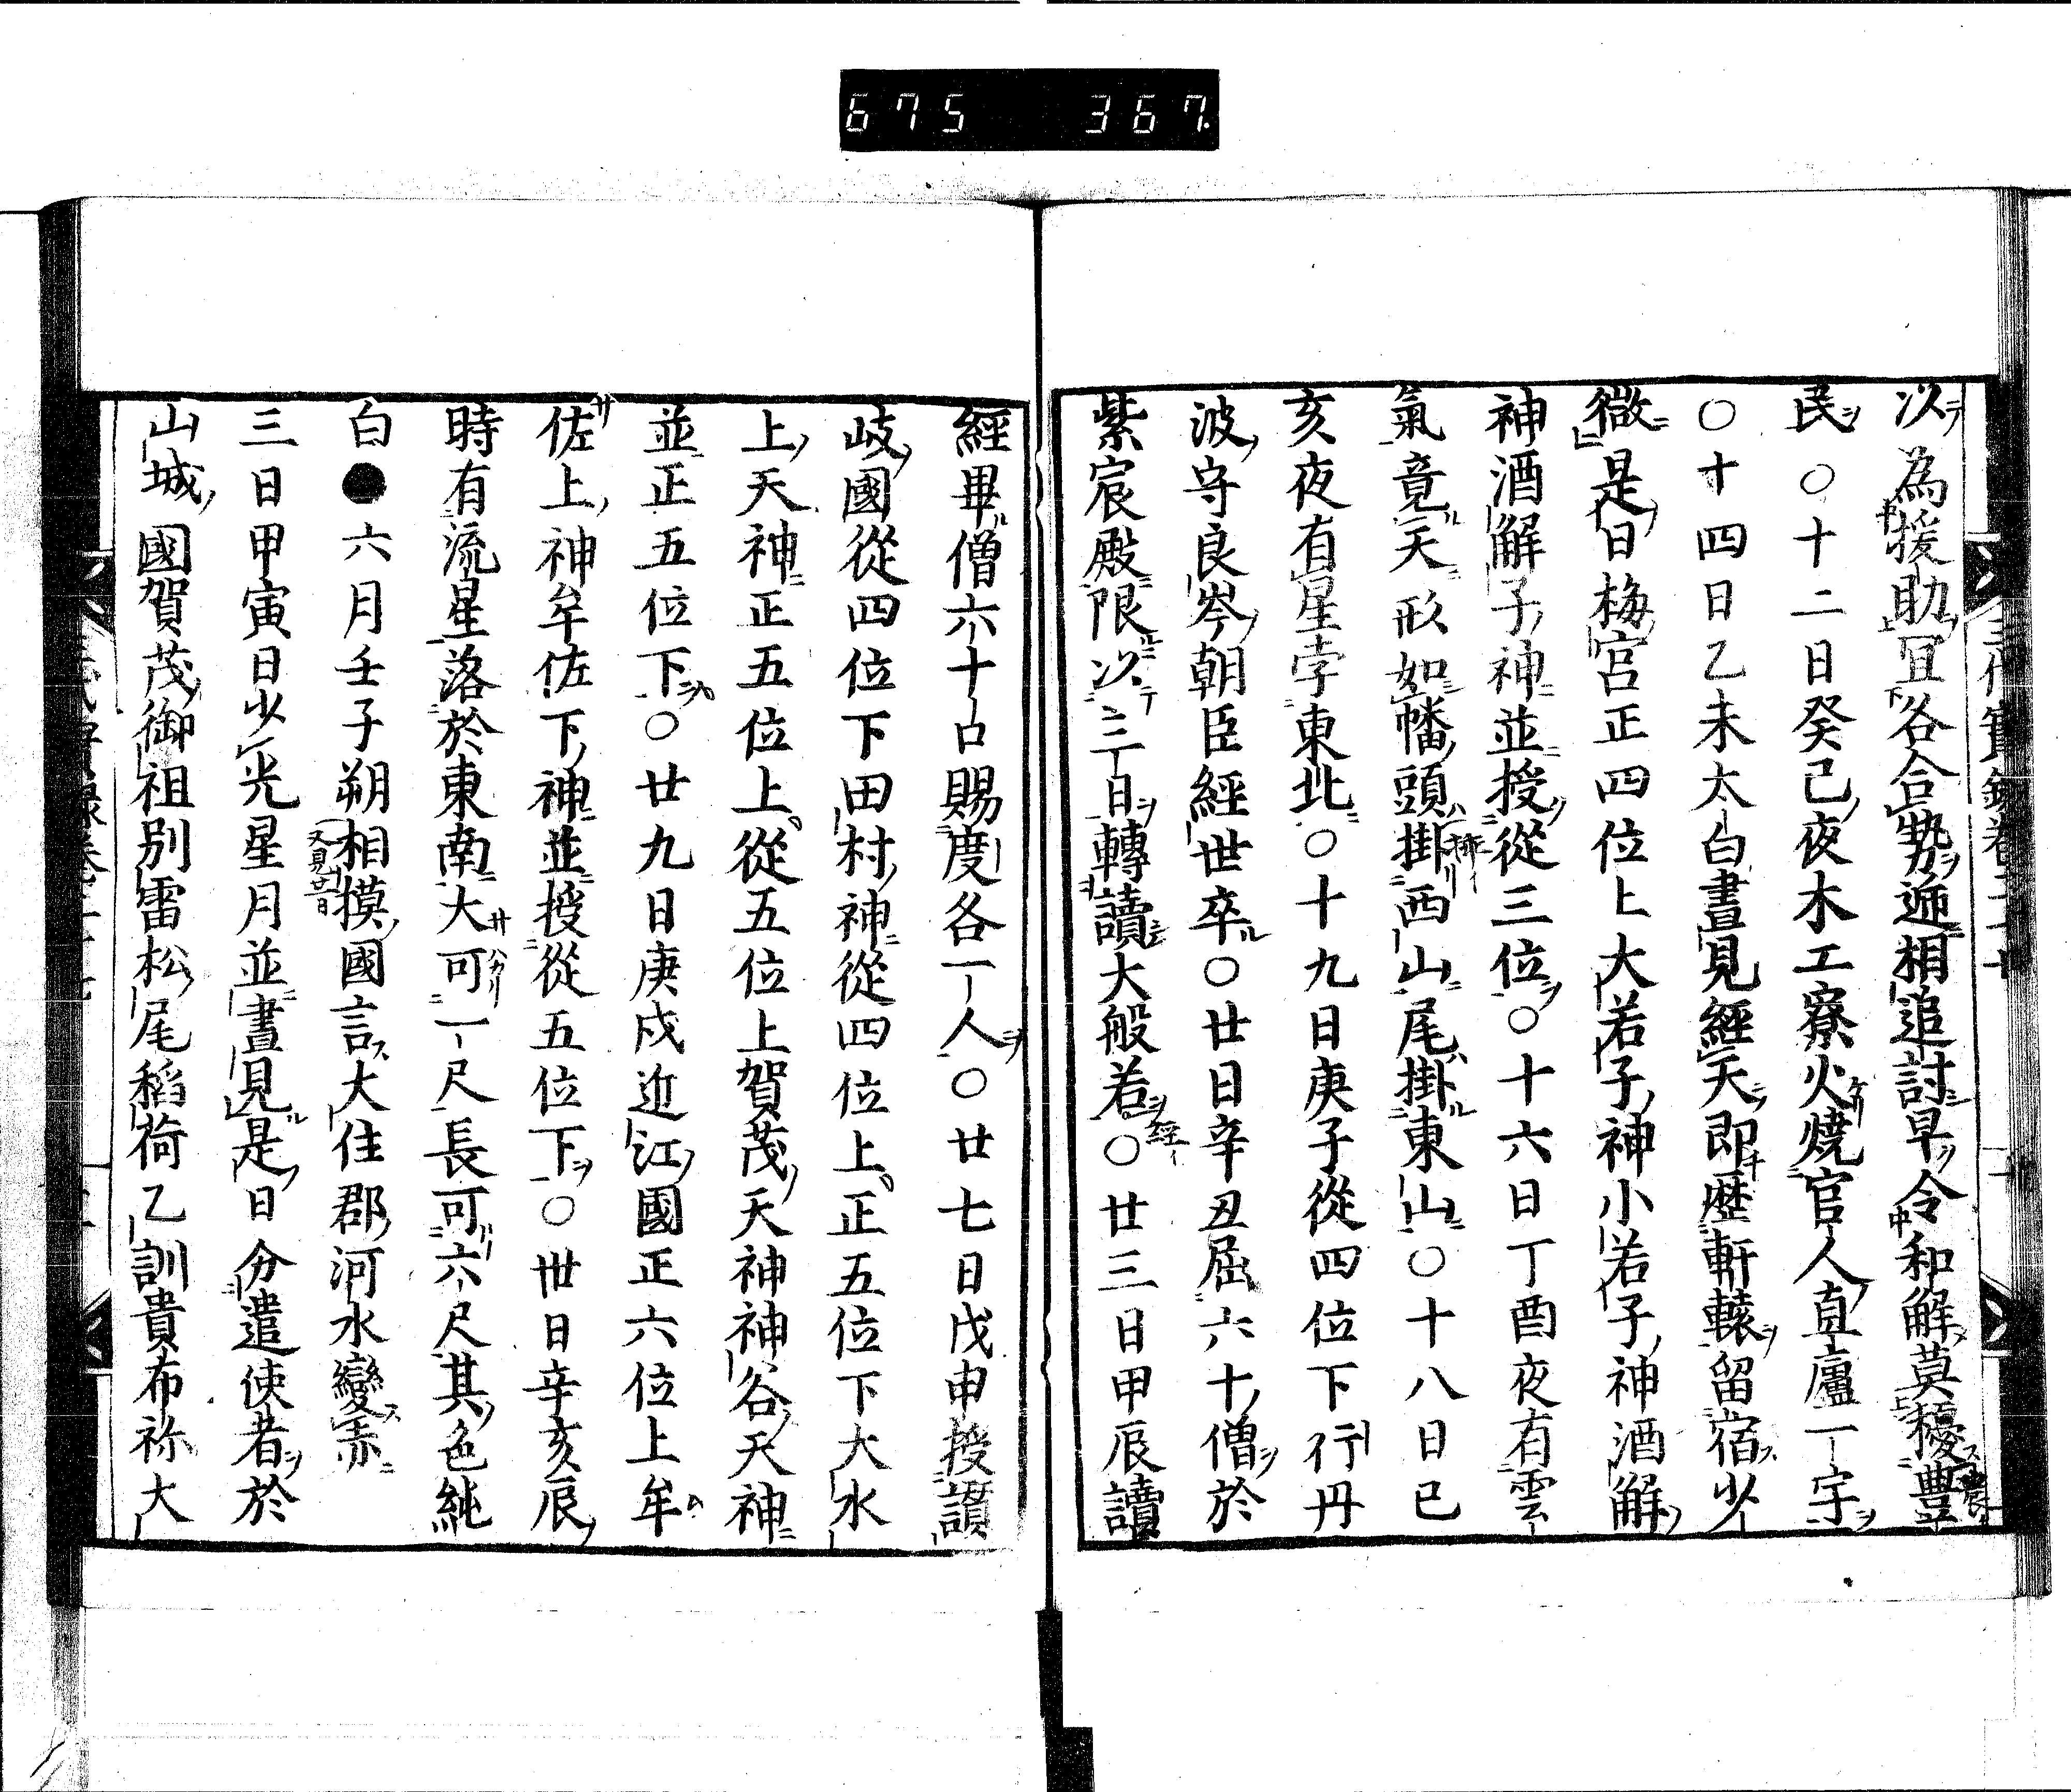 675 367
以為援助冝各合勢逓相追討早令和解莫穩豊
民○十二日癸己夜木工寮火燒官人直廬一宇
○十四日乙未太白晝見經天即歴軒轅留宿少
微是日梅宮正四位上大若子神小若子神酒解
神酒解子神並授從三位○十六日丁酉夜有雲
氣竟天形如幡頭掛西山尾掛東山○十八日已
亥夜有星孛東北○十九日庚子從四位下行丹
波守良岑朝臣經世卒○廿日辛丑屈六十僧於
紫宸殿限以三日轉讀大般若○廿三日甲辰讀
經畢僧六十口賜度各一人○廿七日戊申授讃
岐國從四位下田村神從四位上正五位下大水
上天神正五位上從五位上賀茂天神神谷天神
並正五位下○廿九日庚戌近江國正六位上牟
佐上神牟佐下神並授從五位下○丗日辛亥辰
時有流星落於東南大可一尺長可六尺其色純
白●六月壬子朔相摸國言大住郡河水變赤
三日甲寅日少光星月並晝見是日分遣使者於
山城國賀茂御祖別雷松尾稻荷乙訓貴布祢大